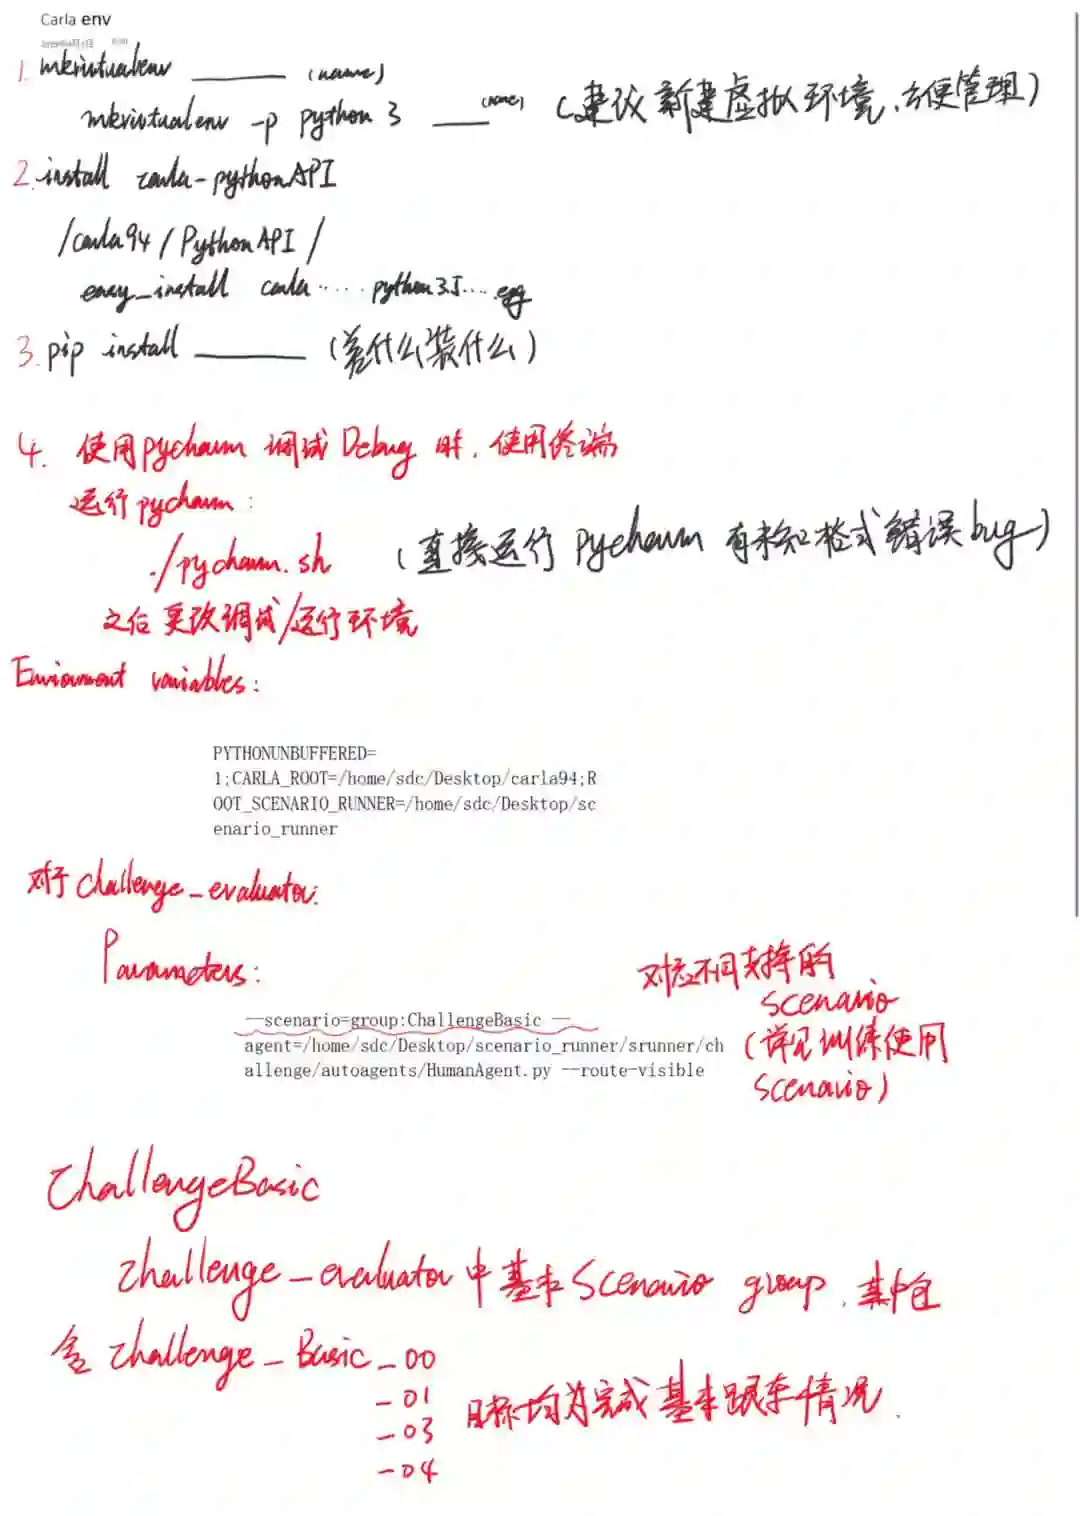 Carla env
1. mkvirtualenv ______ (name)
mkvirtualenv -p python 3 ____ (name) (建议新建虚拟环境，方便管理)
2. install carla-pythonAPI
/carla94/PythonAPI/
easy_install carla ..... python3.5.....egg
3. pip install ______ (差什么装什么)
4. 使用pycharm 调试 Debug 时，使用终端
运行 pycharm:
./pycharm.sh (直接运行 Pycharm 有未知格式错误 bug)
之后更改调试/运行环境
Enviroment variables:
PYTHONUNBUFFERED=
1;CARLA_ROOT=/home/sdc/Desktop/carla94;R
OOT_SCENARIO_RUNNER=/home/sdc/Desktop/sc
enario_runner
对于 challenge_evaluator:
Parameters:
对应不同支持的
scenario
(详见训练使用
scenario)
—scenario=group:ChallengeBasic —
agent=/home/sdc/Desktop/scenario_runner/srunner/ch
allenge/autoagents/HumanAgent.py --route-visible
ChallengeBasic
challenge_evaluator 中基本 Scenario group，其中包
含 challenge_Basic_00
_01
_03
_04
目标均为完成基本跟车情况.